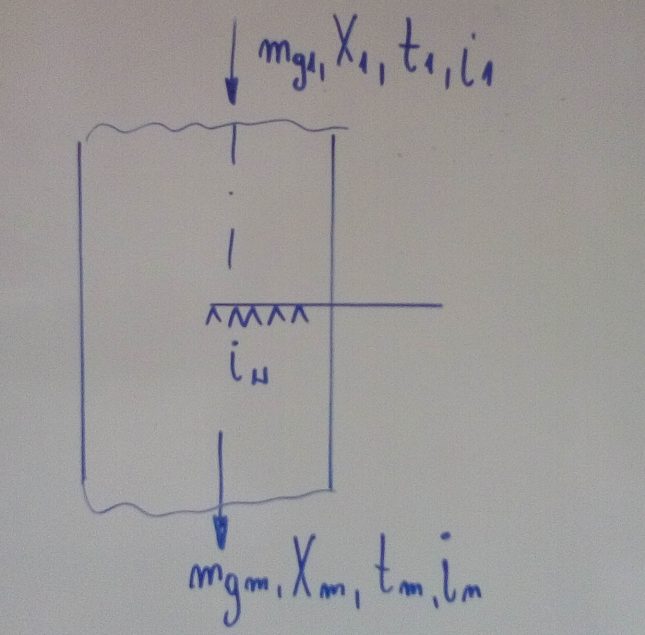 mg1, X1, t1, i1
iN
mgm, Xm, tm, im